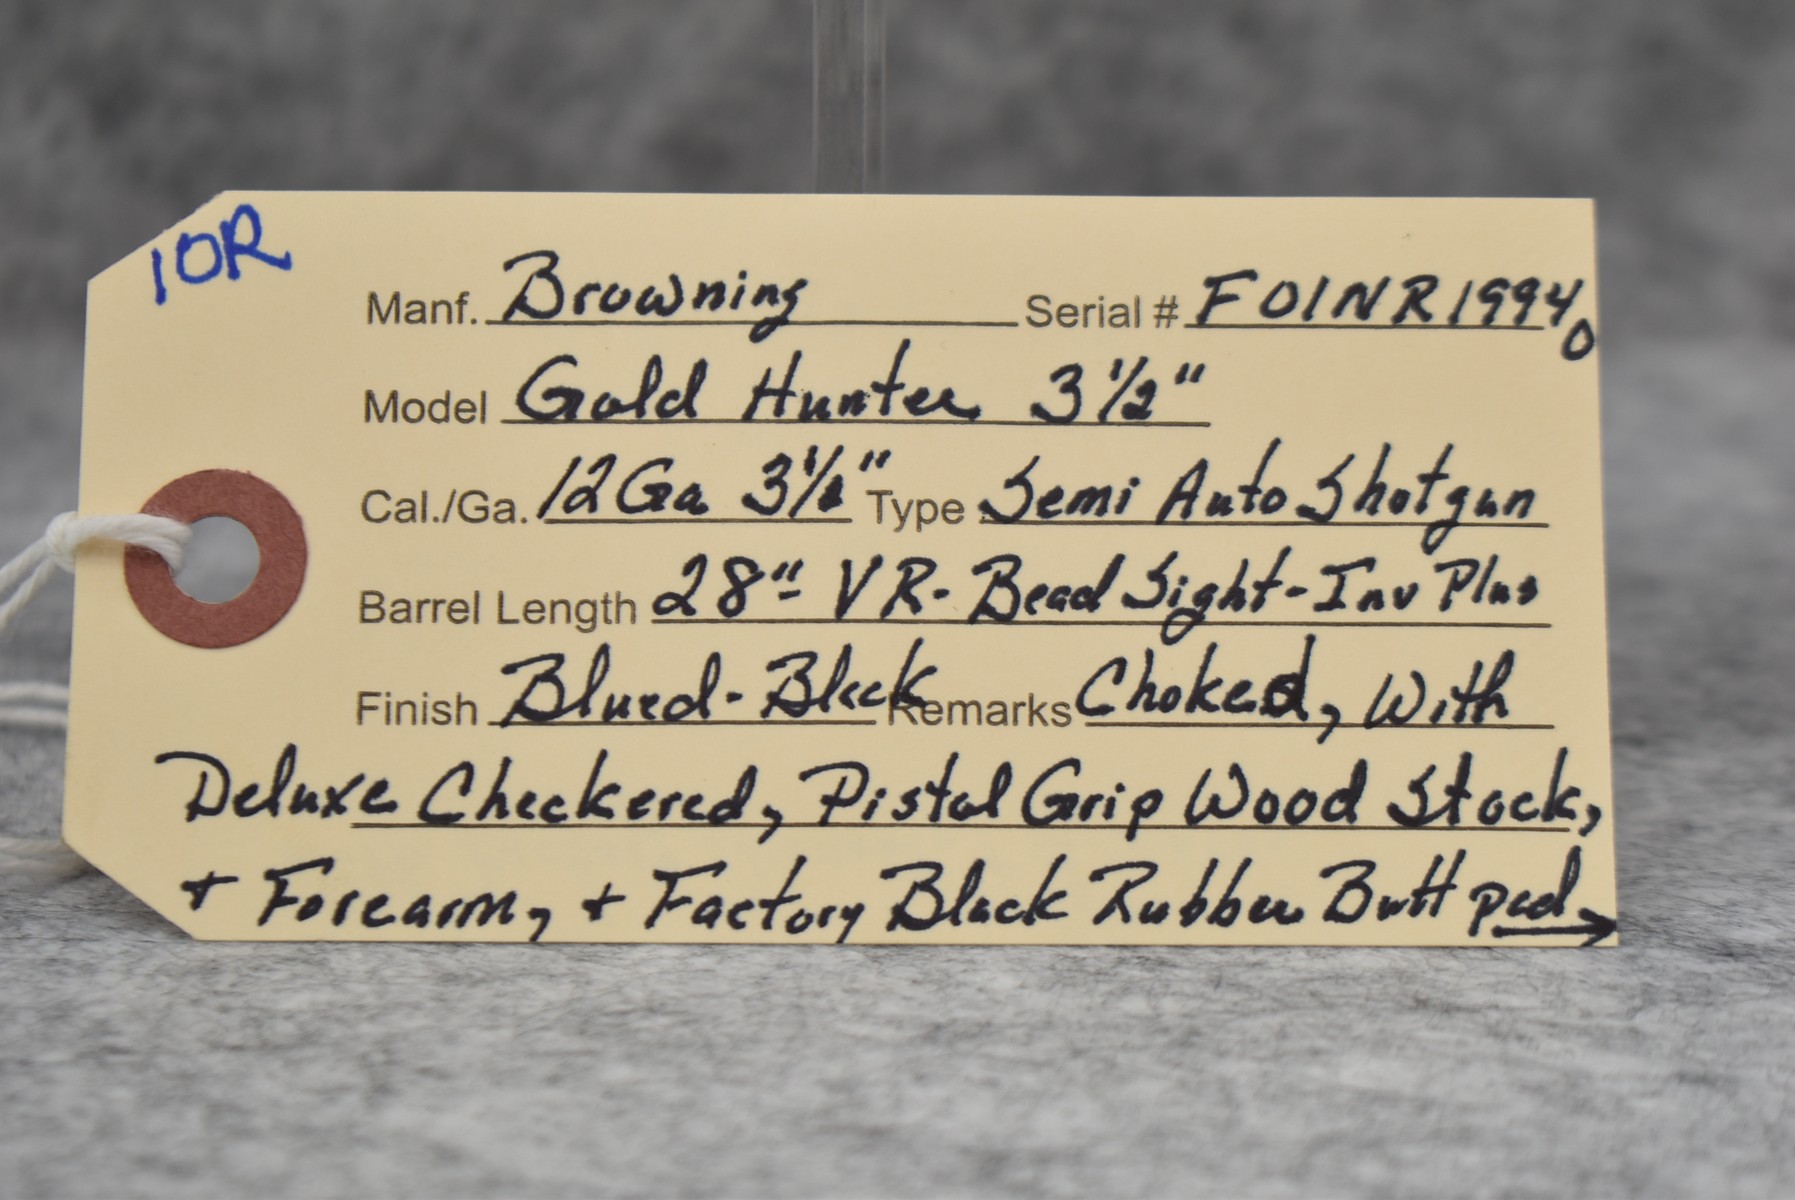 10R
Manf. Browning Serial # F01NR19940
Model Gold Hunter 3 1/2"
Cal./Ga. 12 Ga 3 1/2" Type Semi Auto Shotgun
Barrel Length 28"- VR- Bead Sight- Inv Plus
Finish Blued- Black Remarks Choked, With
Deluxe Checkered, Pistol Grip Wood Stock,
+ Forearm, + Factory Black Rubber Butt pad →